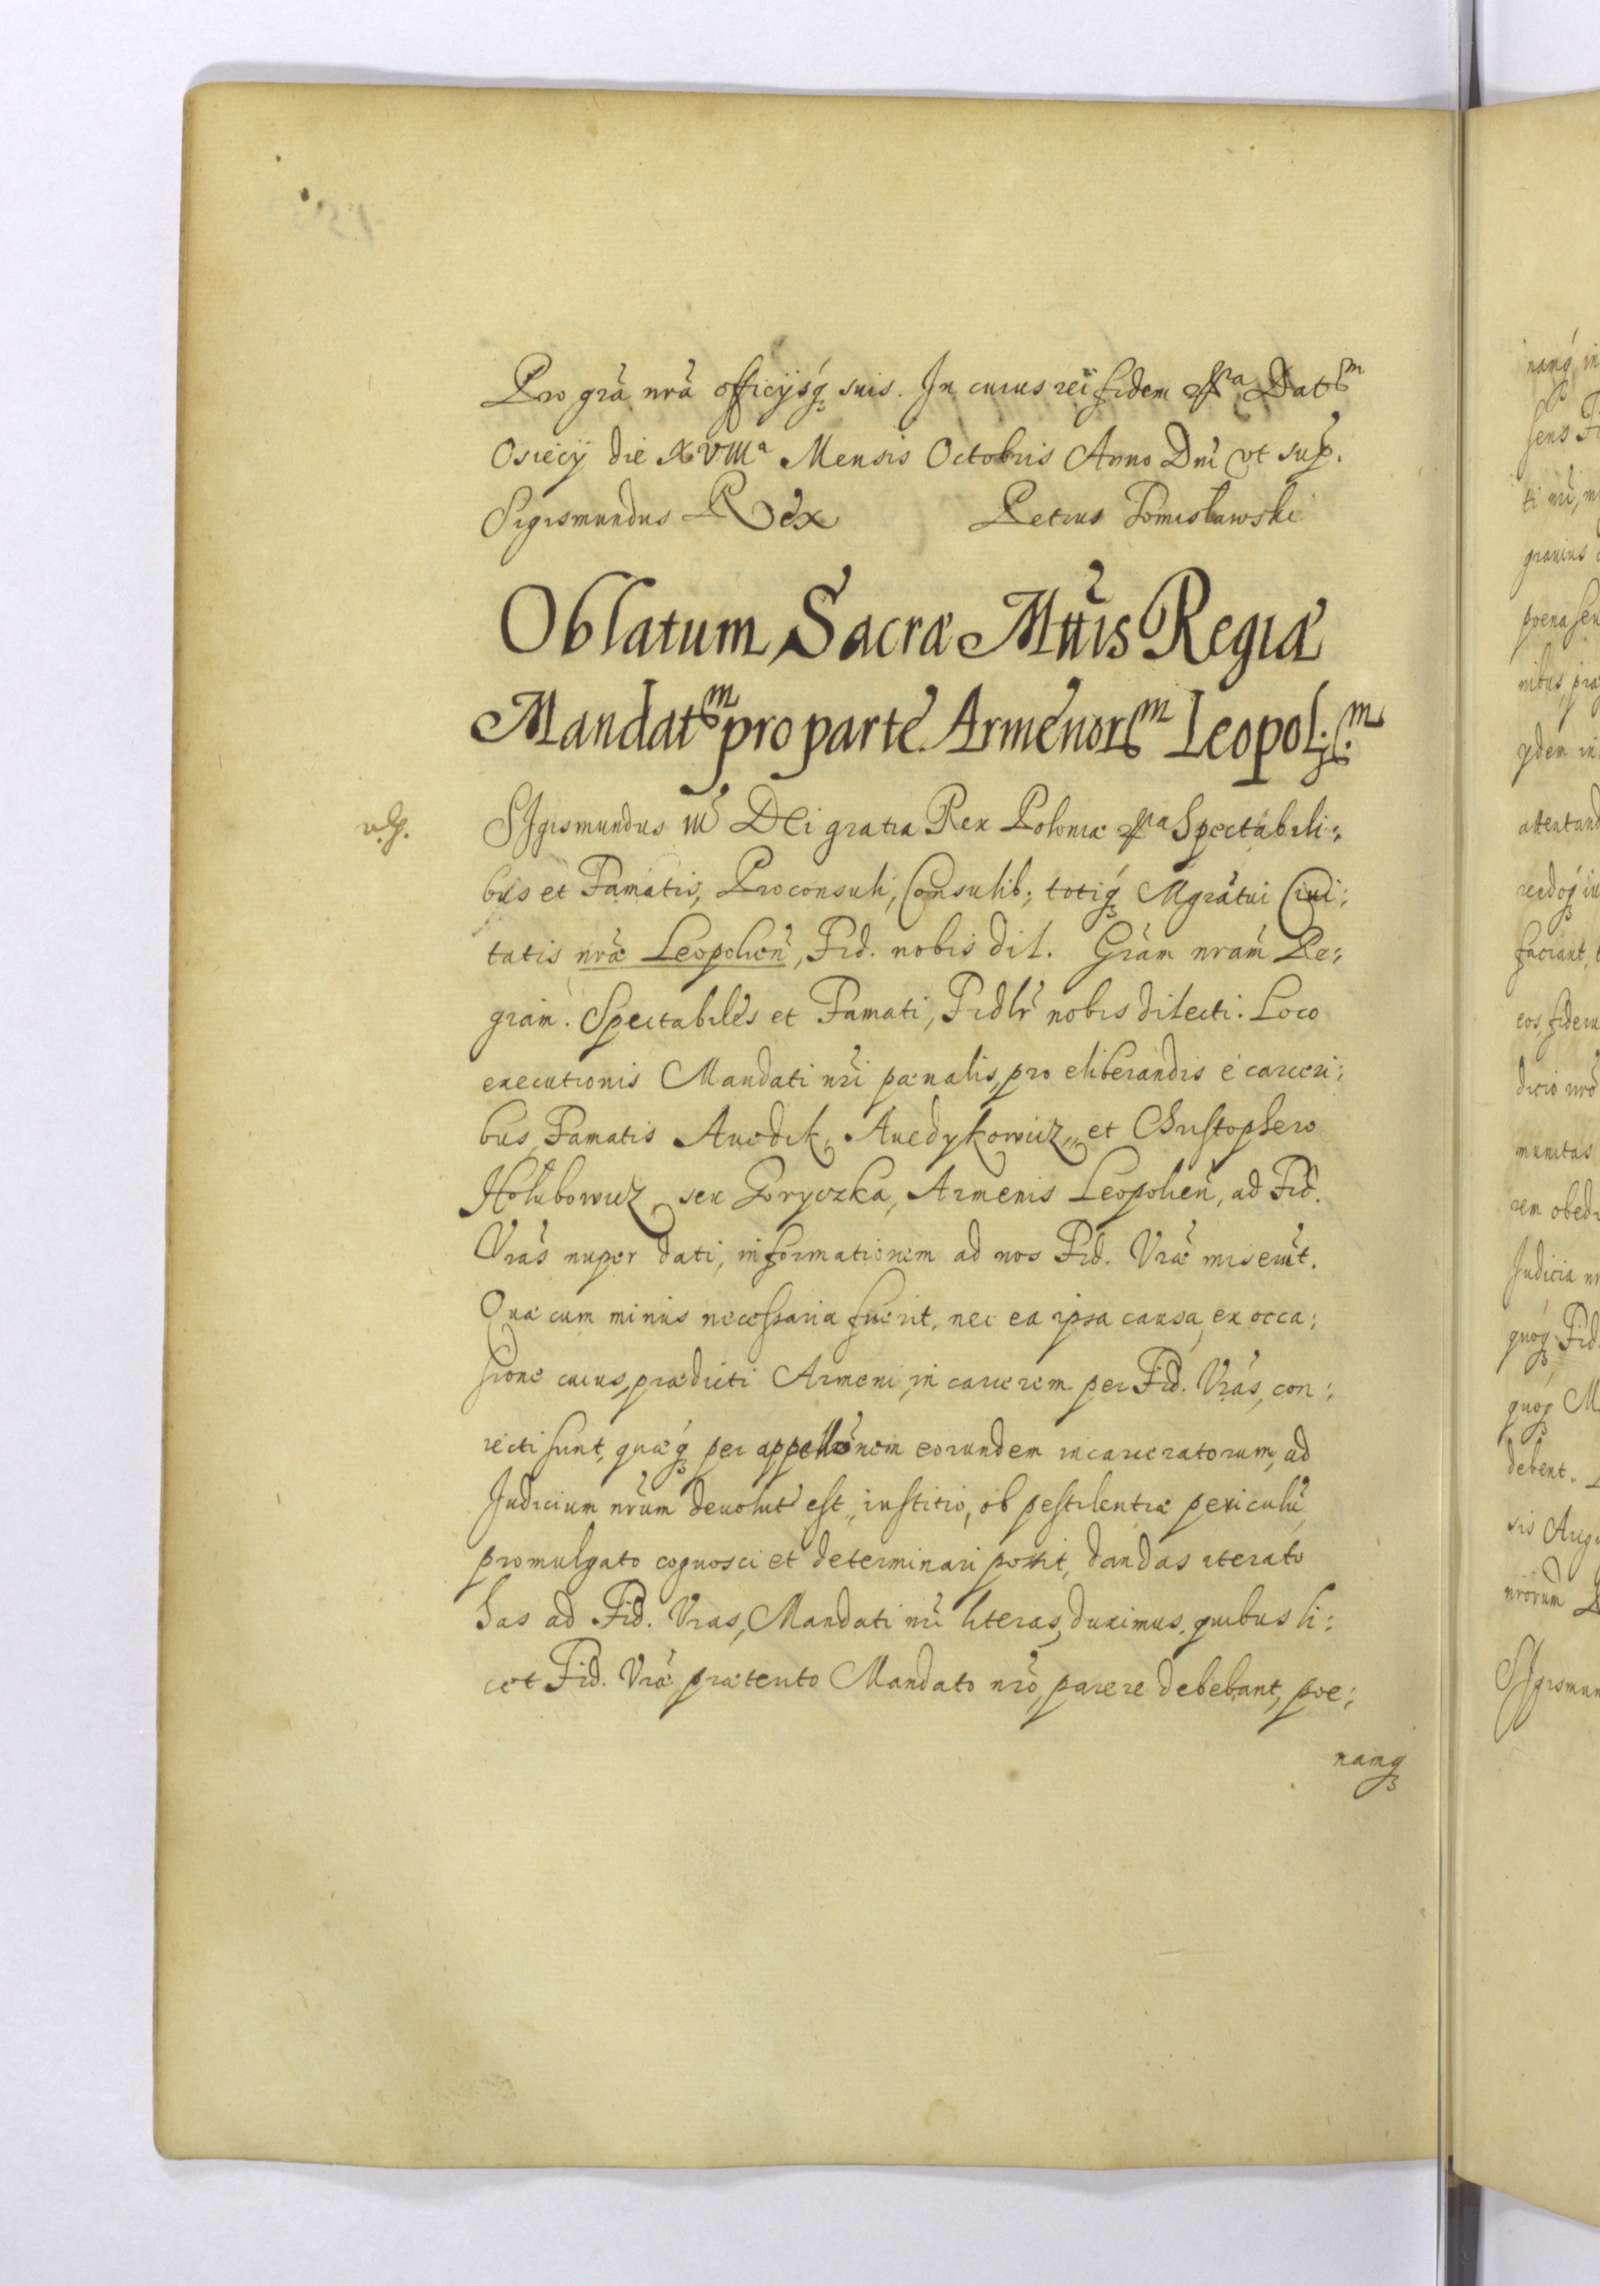 Pro grã nrã officijsq́ suis. In cuius rei fidem &ca Datum
Osiecij die XVIIIa Mensis Octobris Anno Dni ut sup.
Sigismundus Rex Petrus Tomisławski
Oblatum Sacræ Mttis Regiæ
Mandatum pro parte Armenorum Leopol:
SIgismundus III DEi gratia Rex Poloniæ &ca Spectabili:
bus et Famatis, Proconsuli, Consulib; totiq́ Mgratui Ciui:
tatis nræ Leopolien, Fid. nobis dil. Grãm nram Re:
giam. Spectabiles et Famati, Fidlr nobis dilecti. Loco
executionis Mandati nri pænalis, pro eliberandis é carceri:
bus, Famatis Auedik, Auedykowicz, et Christophero
Hołubowicz seu Goryczka, Armenis Leopolien, ad Fid.
Vrãs nuper dati, informationem ad nos Fid. Vræ miserut.
Quæ cum minus necessaria fuerit, nec ea ipsa causa, ex occa:
sione cuius, prædicti Armeni, in carcerem per Fid. Vrás, con:
iecti sunt, quæq́ per appellõnem eorundem incarceratorum, ad
Judicium nrum deuolut est, iustitio, ob pestilentiæ periculũ
promulgato cognosci et determinari possit, dandas iterato
has ad Fid. Vras, Mandati nri literas, duximus, quibus li:
cet Fid. Vræ prætento Mandato nro, parere debebant, poe:
namq
namq́ in
sens
grauius
pydem in
attentand
faciant,
eos, fidem
dicio nro
munitas
rem obed
Judicia
quoq Fid
quoq M
debent.
sis Aug
nrorum
SIgismun